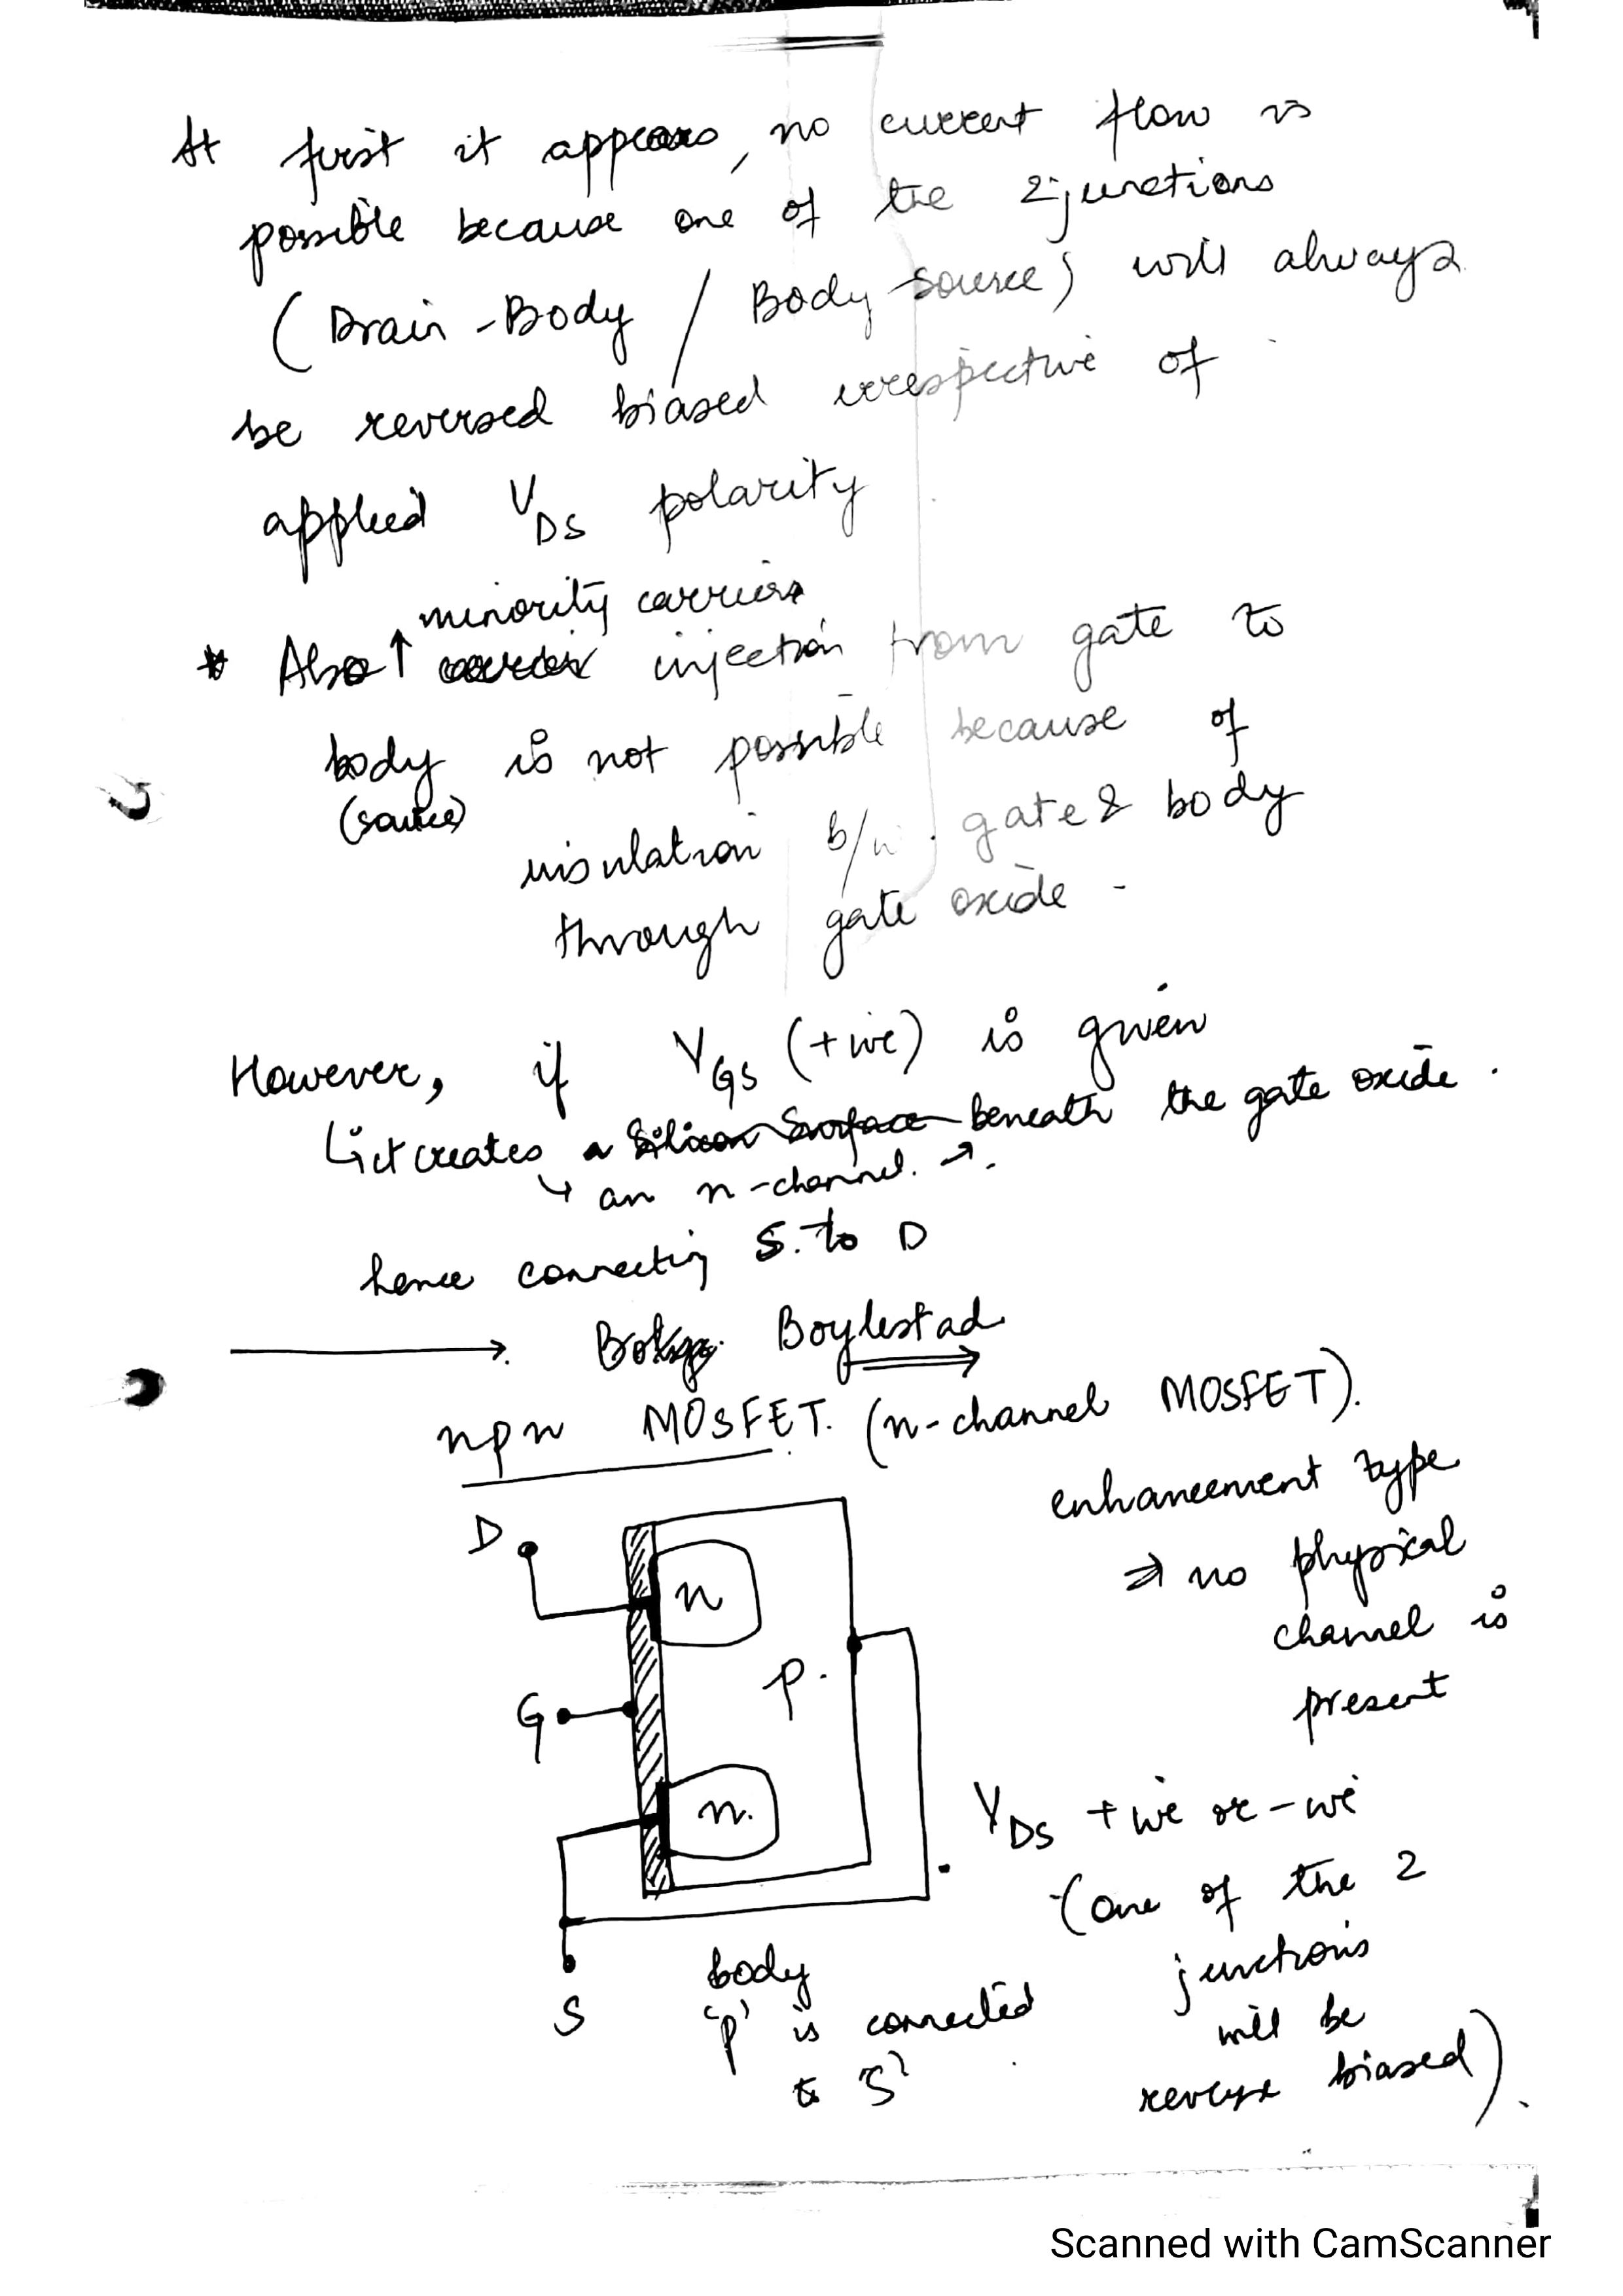 At first it appears, no current flow is
possible because one of the 2 junctions
(Drain-Body / Body-source) will always
be reversed biased irrespective of
applied VDS polarity
minority carriers
* Also ↑ injection from gate to
body is not possible because of
(source)
insulation b/w gate & body
through gate oxide.
However, if VGS (+ive) is given
↳ it creates a Silicon Surface beneath the gate oxide.
↳ an n-channel. →
hence connecting S. to D
→ Boylestad ⇒
npn MOSFET. (n-channel MOSFET).
enhancement type
⇒ no physical
channel is
present
D
n
p.
G
n.
S
VDS +ive or -ive
(one of the 2
junctions
will be
reverse biased).
body
'p' is connected
to 'S'
Scanned with CamScanner